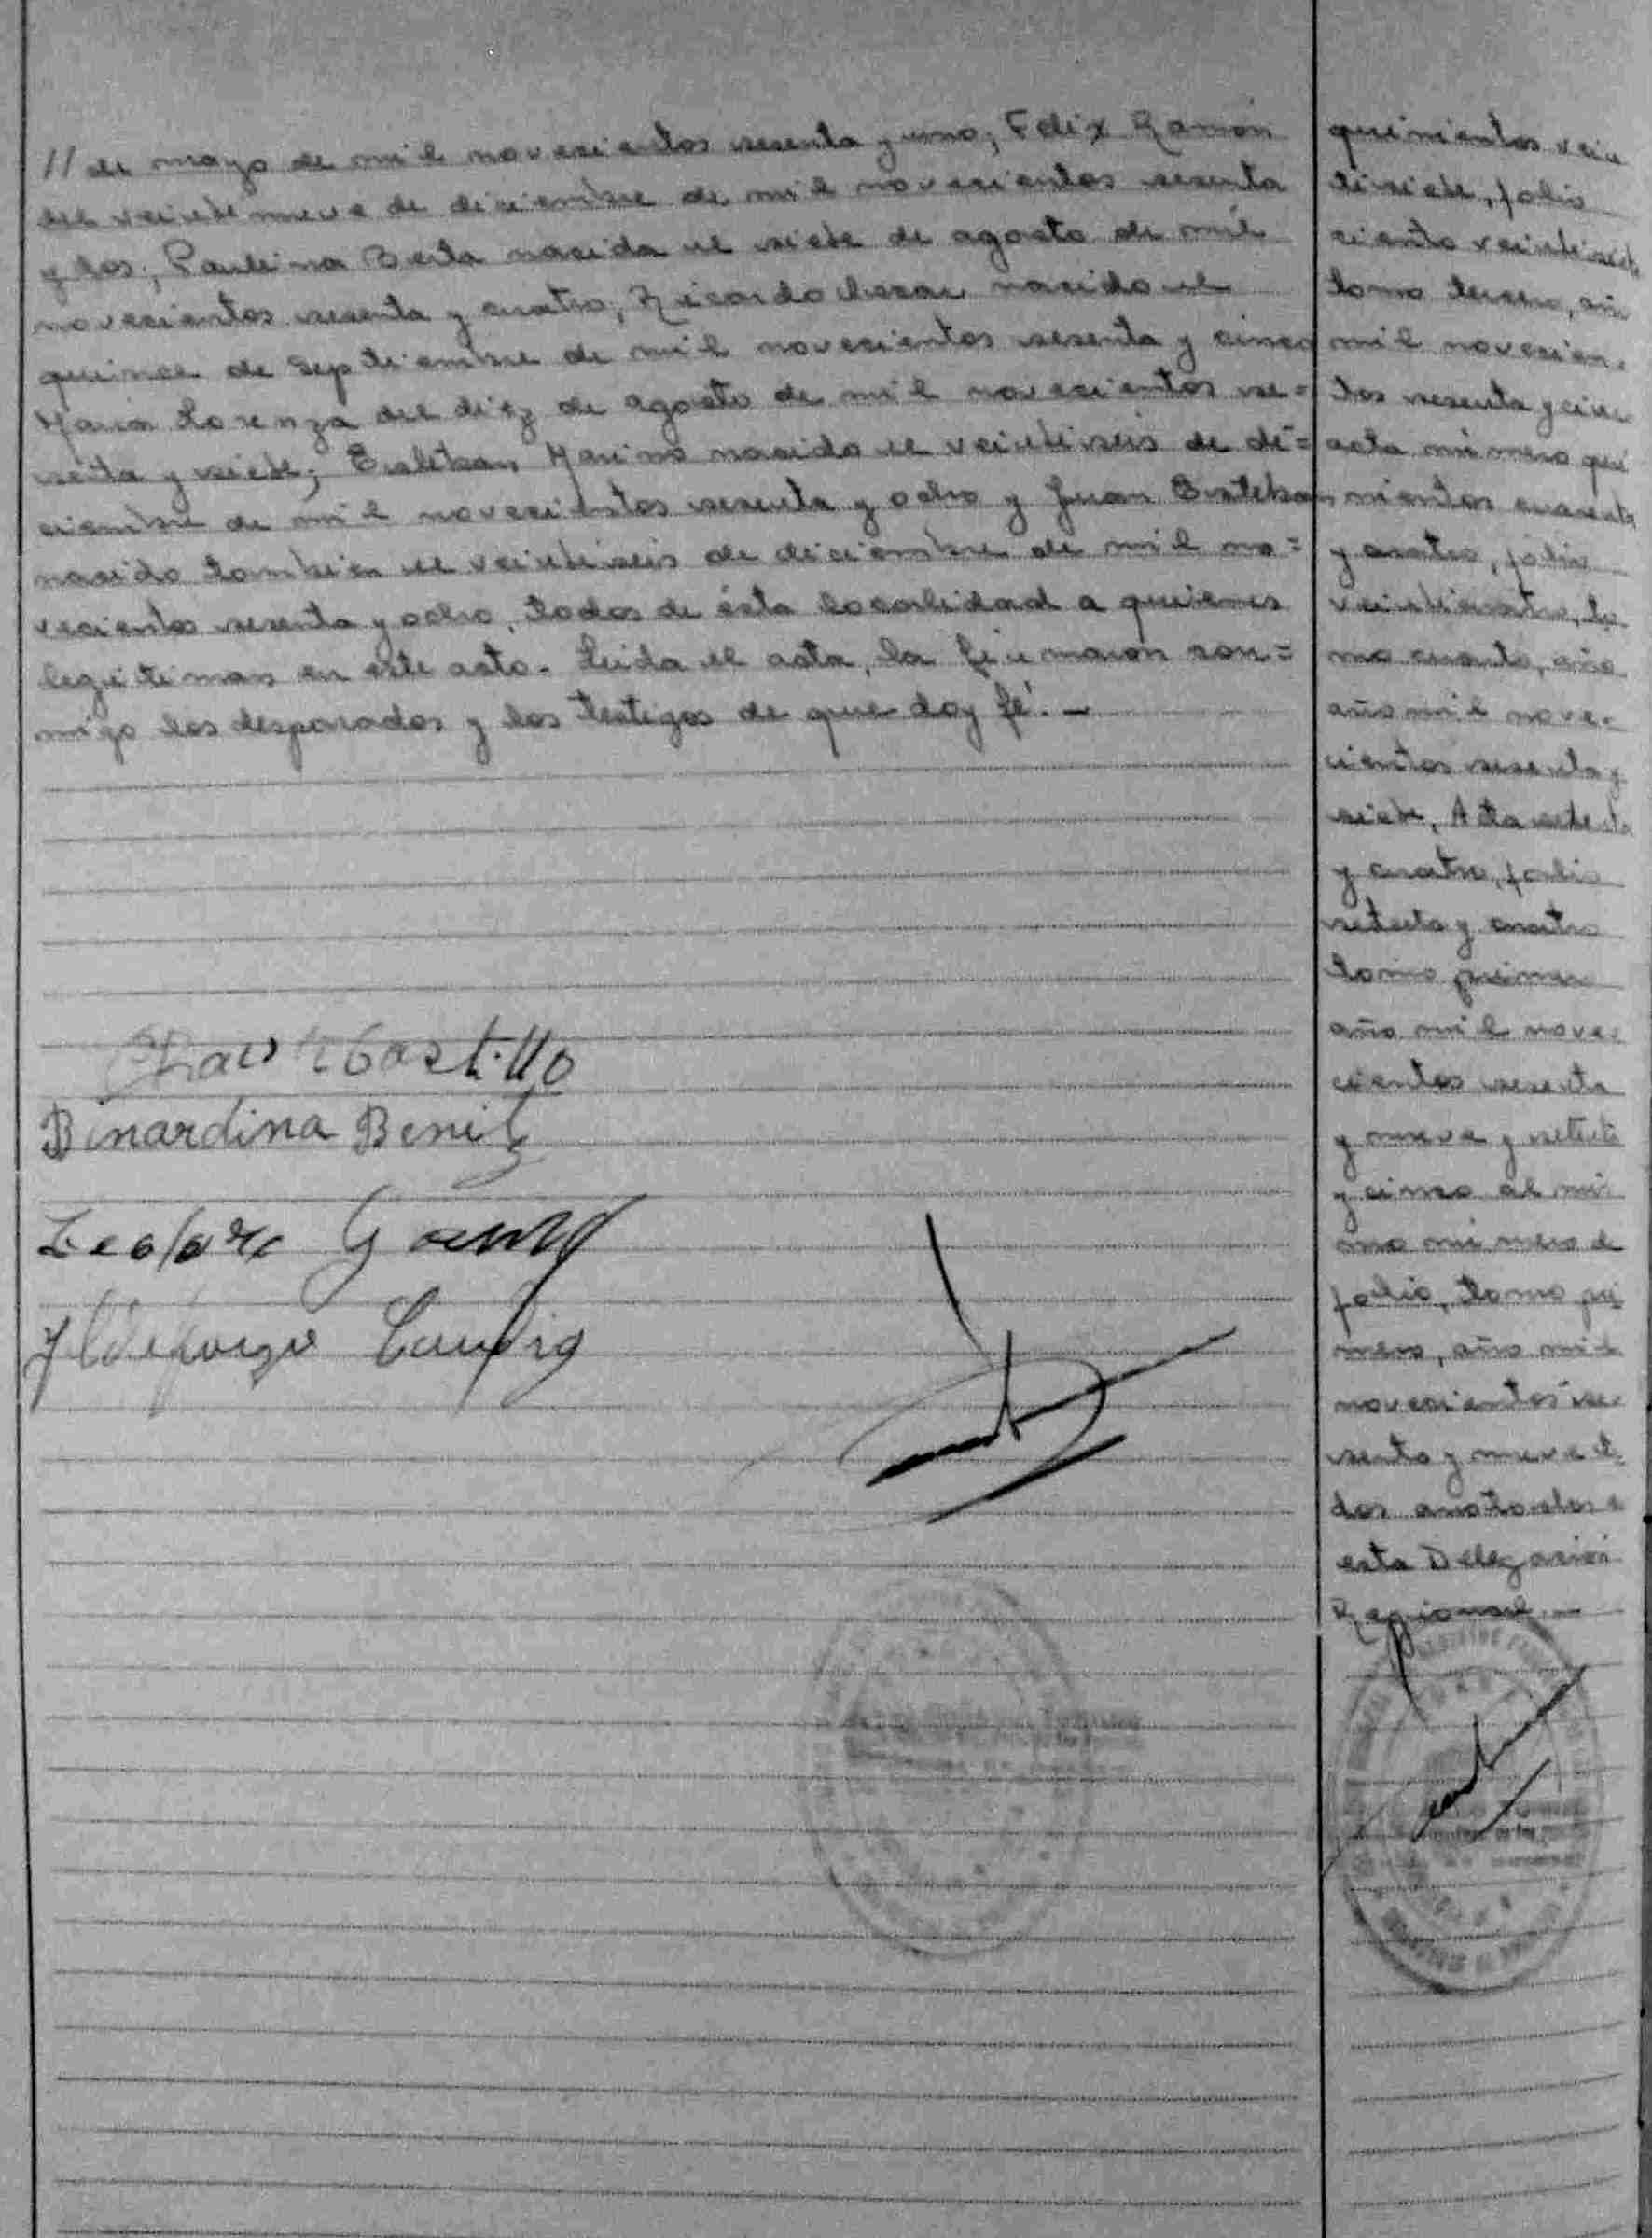 // de mayo de mil novecientos sesenta y uno; Felix Ramón
del veintinueve de diciembre de mil novecientos sesenta
y dos; Paulina Berta nacida el siete de agosto de mil
novecientos sesenta y cuatro; Ricardo Cesar nacido el
quince de septiembre de mil novecientos sesenta y cinco
Maria Lorenza del diez de agosto de mil novecientos se=
senta y siete; Esteban Marino nacido el veintiseis de di=
ciembre de mil novecientos sesenta y ocho y Juan Esteban
nacido tambien el veintiseis de diciembre de mil no=
vecientos sesenta y ocho, todos de ésta localidad a quienes
legitiman en este acto. Leida el acta, la firmaron con=
migo los desposados y los testigos de que doy fé. -
Castillo
Binardina Benit
Ildefonzo
quinientos vein
tisiete, folio
ciento veintisiete
tomo tercero, año
mil novecien=
tos sesenta y cinco
acta número qui
nientos cuarenta
y cuatro, folio
veinticuatro, to
mo cuarto, año
año mil nove=
cientos sesenta y
siete, Acta setenta
y cuatro, folio
setenta y cuatro
tomo primero
año mil nove=
cientos sesenta
y nueve y setenta
y cinco al mis
mo número de
folio, tomo pri
mero, año mil
novecientos se=
senta y nueve to
dos anotados e
esta Delegación
Regional. -